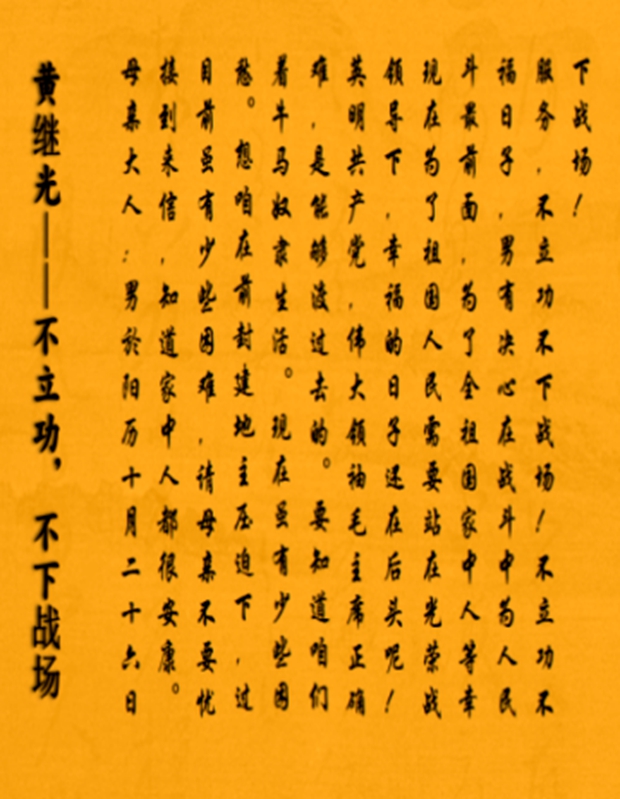 黄继光——不立功，不下战场
母亲大人：男於阳历十月二十六日
接到来信，知道家中人都很安康。
目前虽有少些困难，请母亲不要忧
愁。想咱在前封建地主压迫下，过
着牛马奴隶生活。现在虽有少些困
难，是能够渡过去的。要知道咱们
英明共产党，伟大领袖毛主席正确
领导下，幸福的日子还在后头呢！
现在为了祖国人民需要站在光荣战
斗最前面，为了全祖国家中人等幸
福日子，男有决心在战斗中为人民
服务，不立功不下战场！不立功不
下战场！